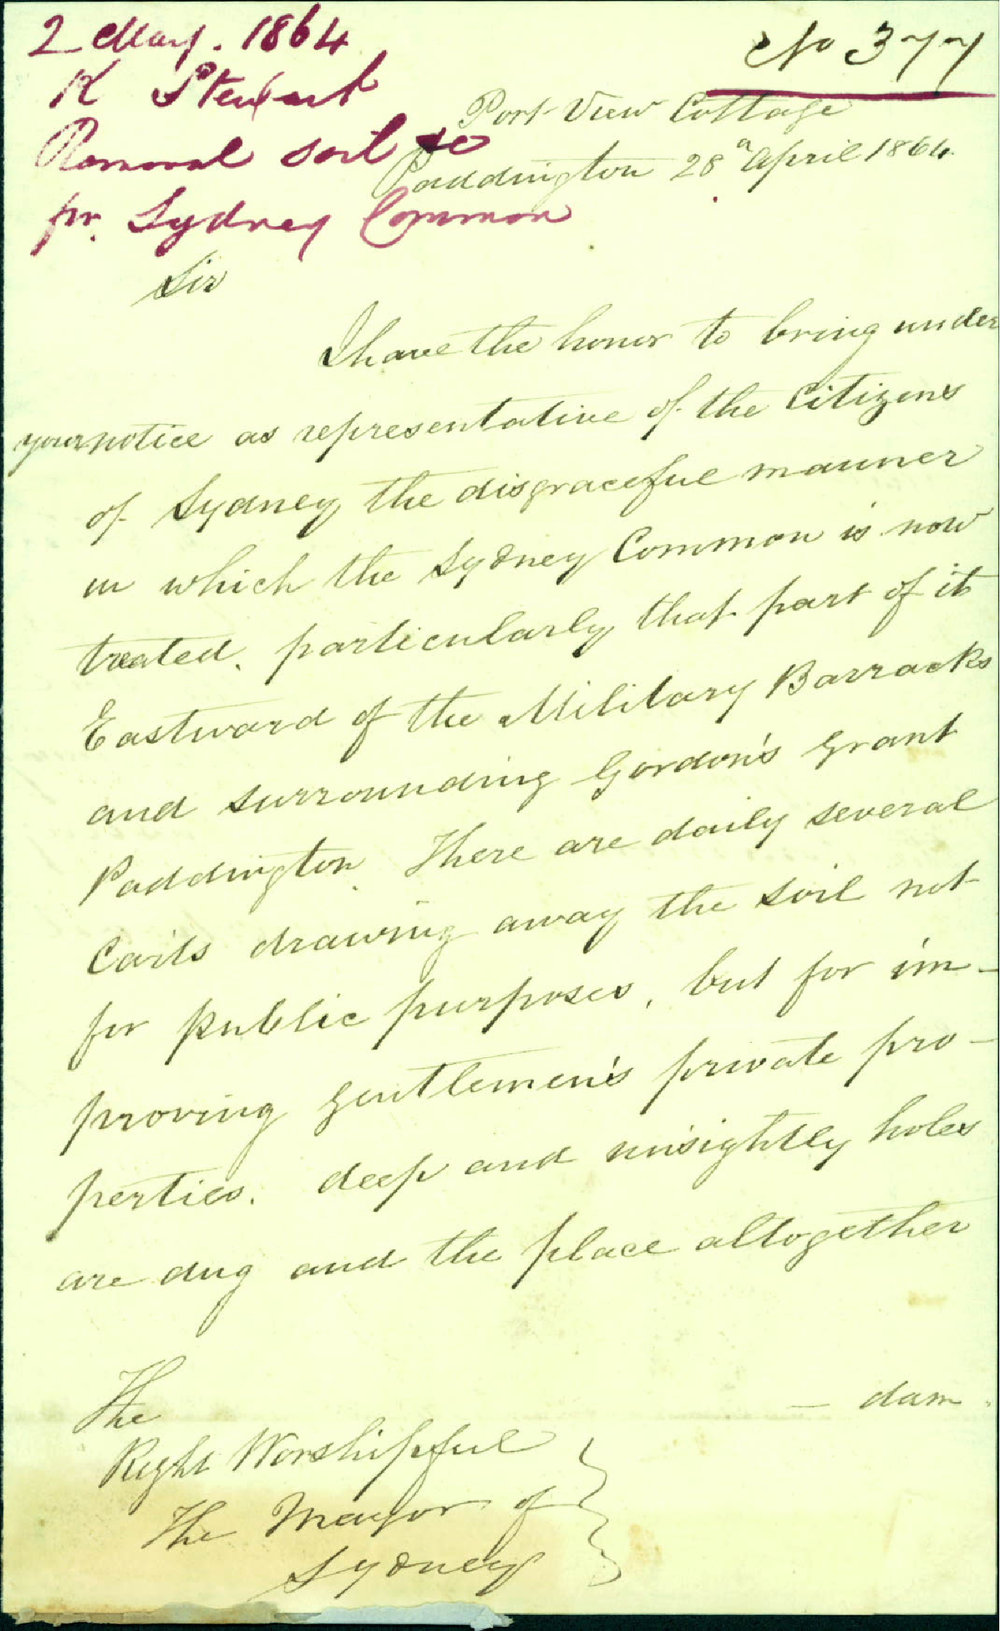 2 May. 1864
K Stewart
Removal soil &c
fr. Sydney Common
No 377
Port View Cottage
Paddington 28th April 1864.
Sir
I have the honor to bring under
your notice as representative of the Citizens
of Sydney, the disgraceful manner
in which the Sydney Common is now
treated, particularly that part of it
Eastward of the Military Barracks
and surrounding Gordon's Grant
Paddington. There are daily several
Carts drawing away the soil not
for public purposes, but for im-
proving gentlemen's private pro-
perties. deep and unsightly holes
are dug and the place altogether
- dam
The
Right Worshipful
The Mayor of
Sydney